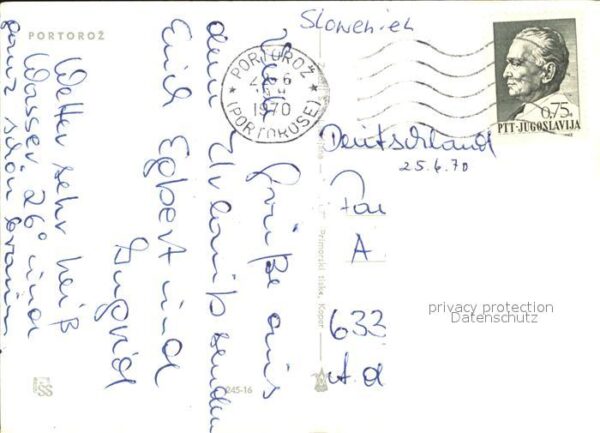 PORTOROŽ
Slowenien
* PORTOROŽ *
1970
(PORTOROSE)
0.75
PTT-JUGOSLAVIJA
Deutschland
25.6.70
Fam
A
633
privacy protection
Datenschutz
Grüße aus
dem Urlaub senden
Euch Egbert und
Ingrid
Wetter sehr heiß
Wasser 26° und
ganz schön braun
Primorski tisk, Koper
245-16